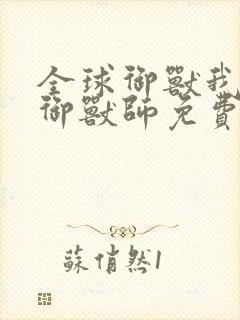 全球御獸我
御獸師免費
蘇俏然1